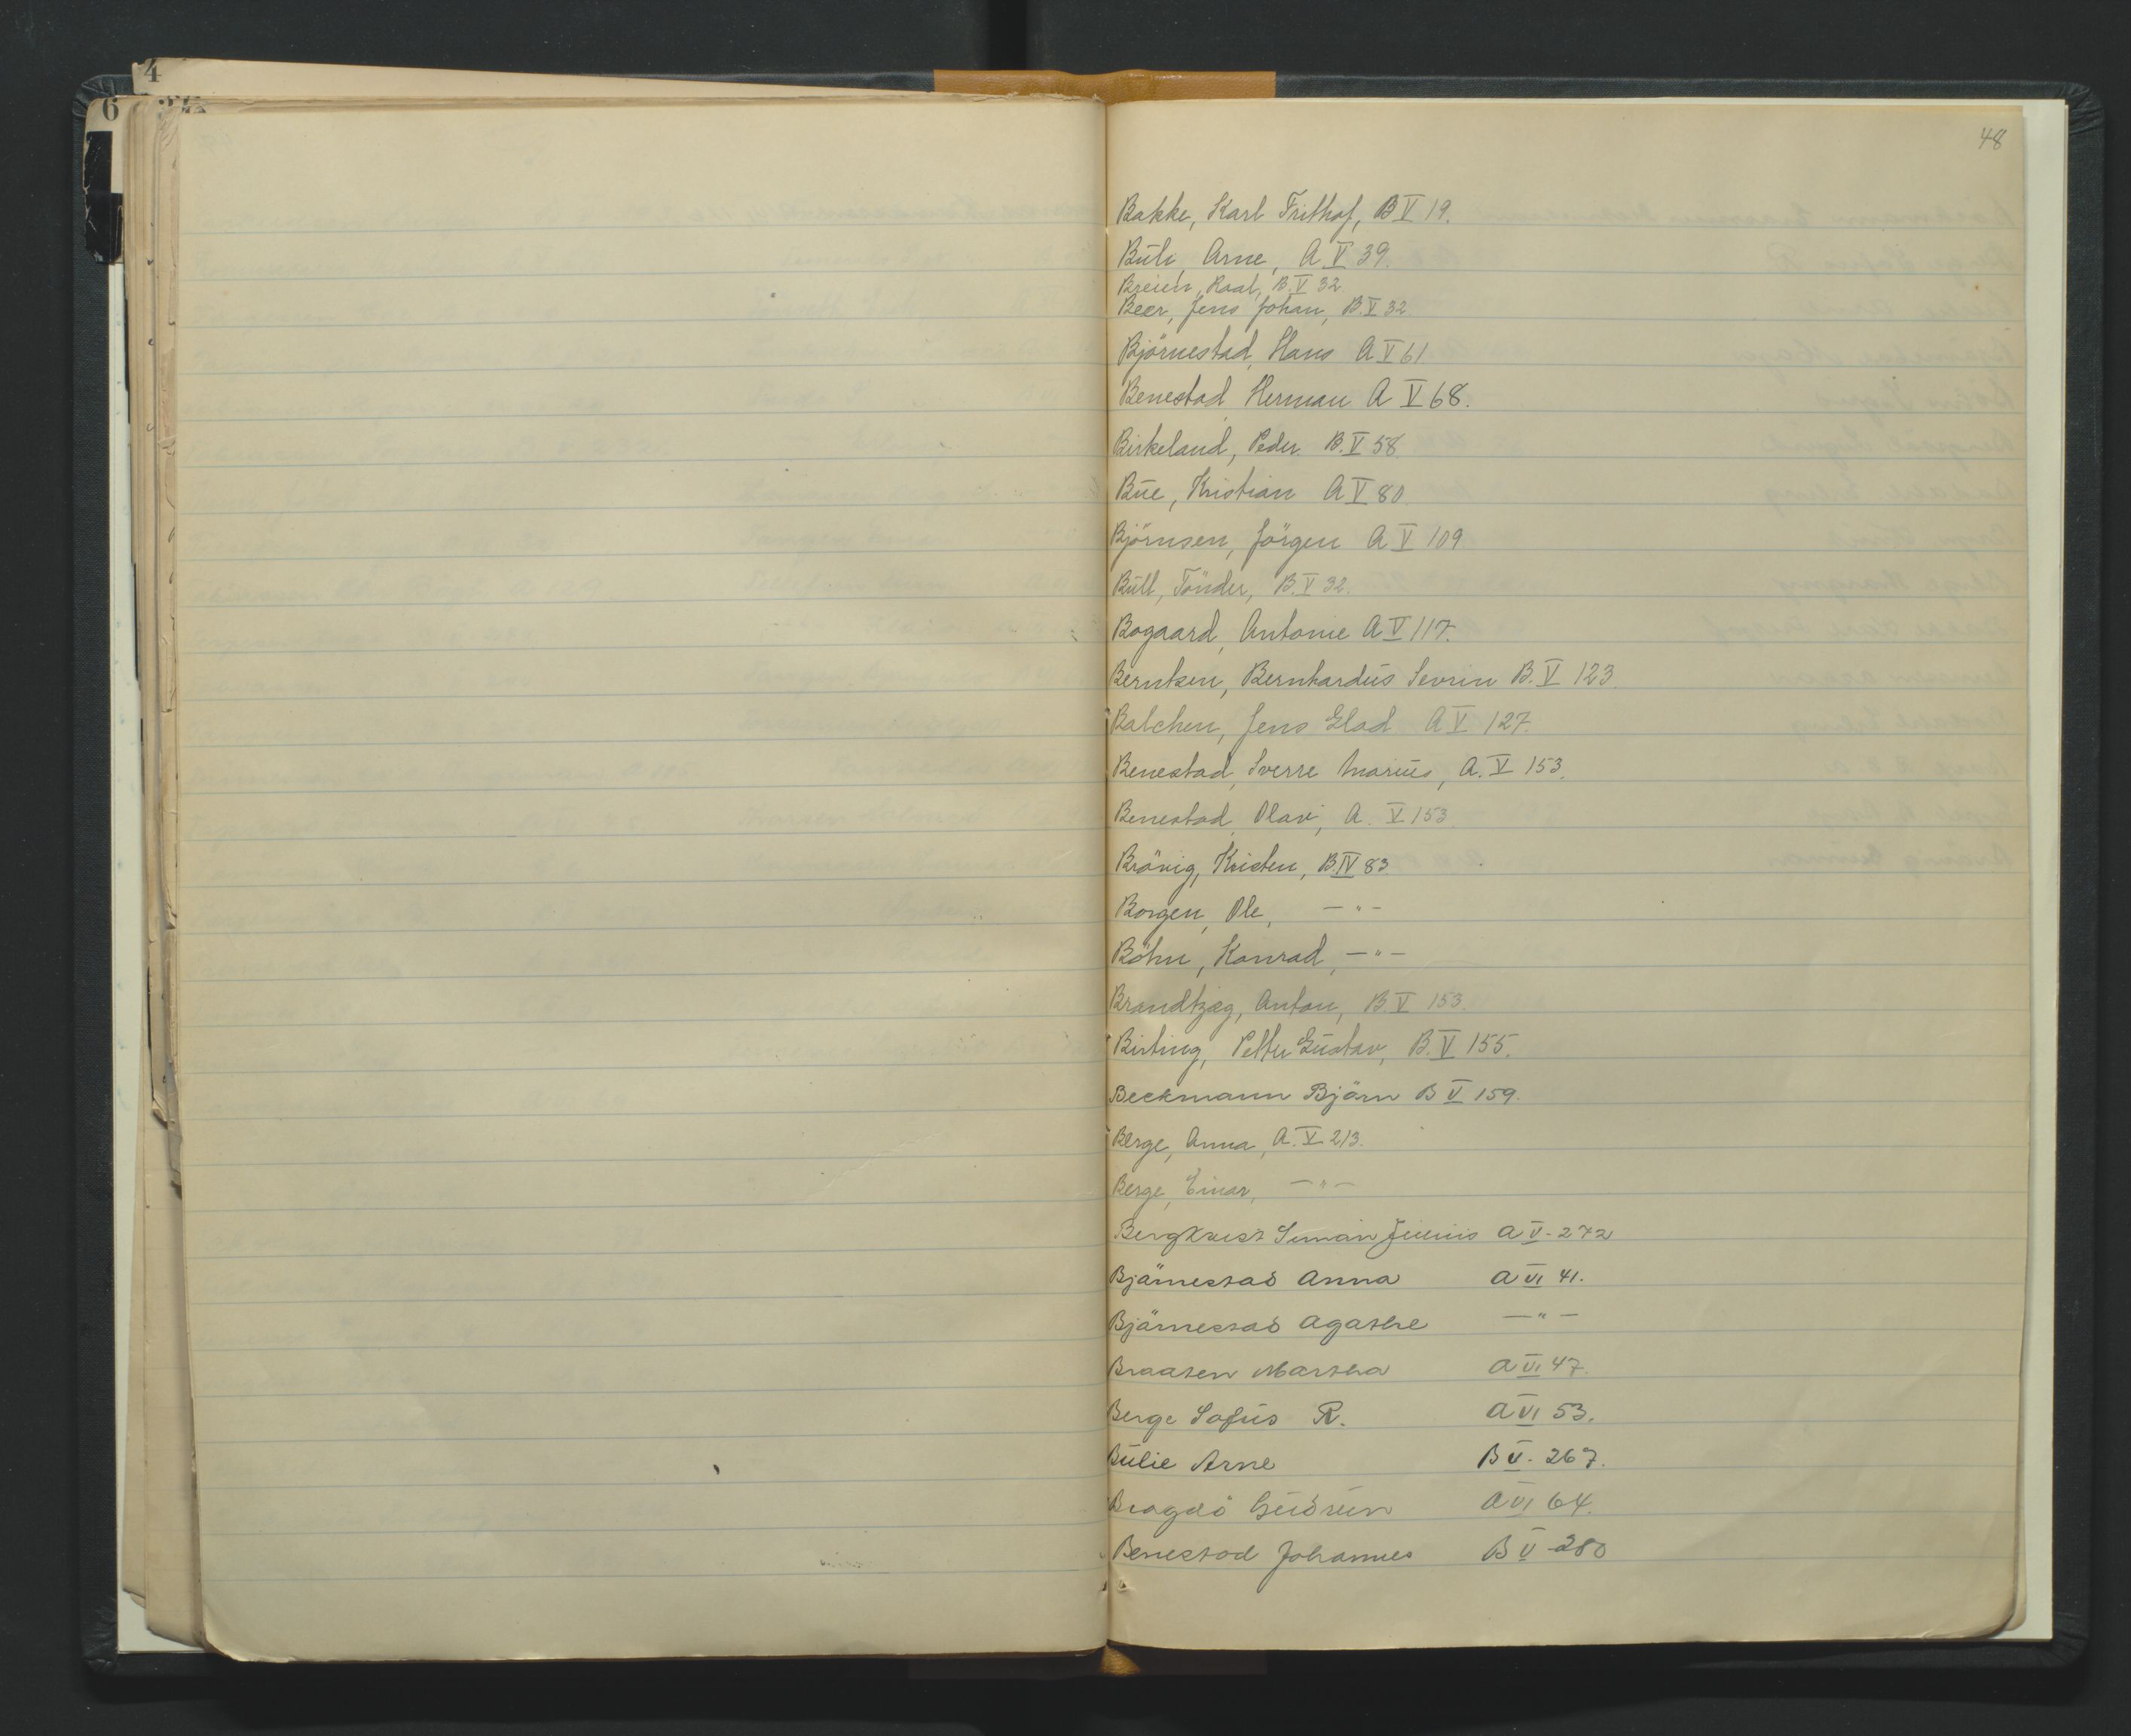 4
6
48
Bakke, Karl Frithof, B V 19.
Büli, Arne, A V 39.
Breien, Roal, B. V 32
Beer, Jens Johan, B. V 32
Björnestad, Hans A V 61
Benestad, Herman A V 68.
Birkeland, Peder. B. V 58.
Büe, Kristian A V 80
Björnsen, Jörgen A V 109
Büll, Tönder, B. V 32.
Bogaard, Antonie A V 117.
Berntsen, Bernhardüs Sevrin B. V 123
Balchen, Jens Glad A V 127.
Benestad, Sverre Mariüs, A. V 153.
Benestad, Olav, A. V 153
Brövig, Kristen, B. IV 83
Borgen, Ole, — " —
Böhn, Konrad, — " —
Brandtzæg, Anton, B. V 153.
Birting, Petter Güstav, B. V 155.
Beckmann Björn B V 159.
Berge, Anna, A. V 213.
Berge, Einar, — " —
Bergkvist Simon Juliüs A V - 272
Björnestad Anna A VI 41.
Björnestad Agathe — " —
Braaten Martha A VI 47.
Berge Sofüs R. A VI 53.
Bülie Arne B V - 267.
Bragdö Güdrün A VI 64.
Benestad Johannes B V - 280